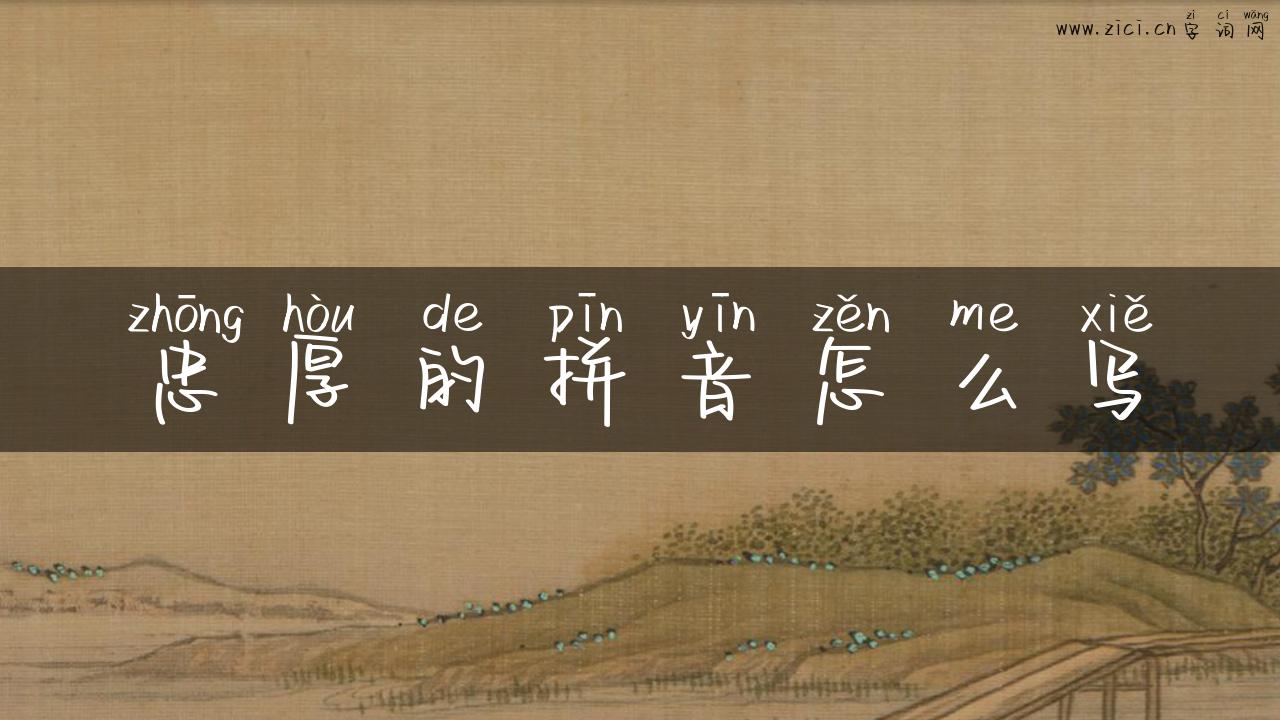 zì cí wǎng
www.zici.cn字词网
zhōng hòu de pīn yīn zěn me xiě
忠厚的拼音怎么写